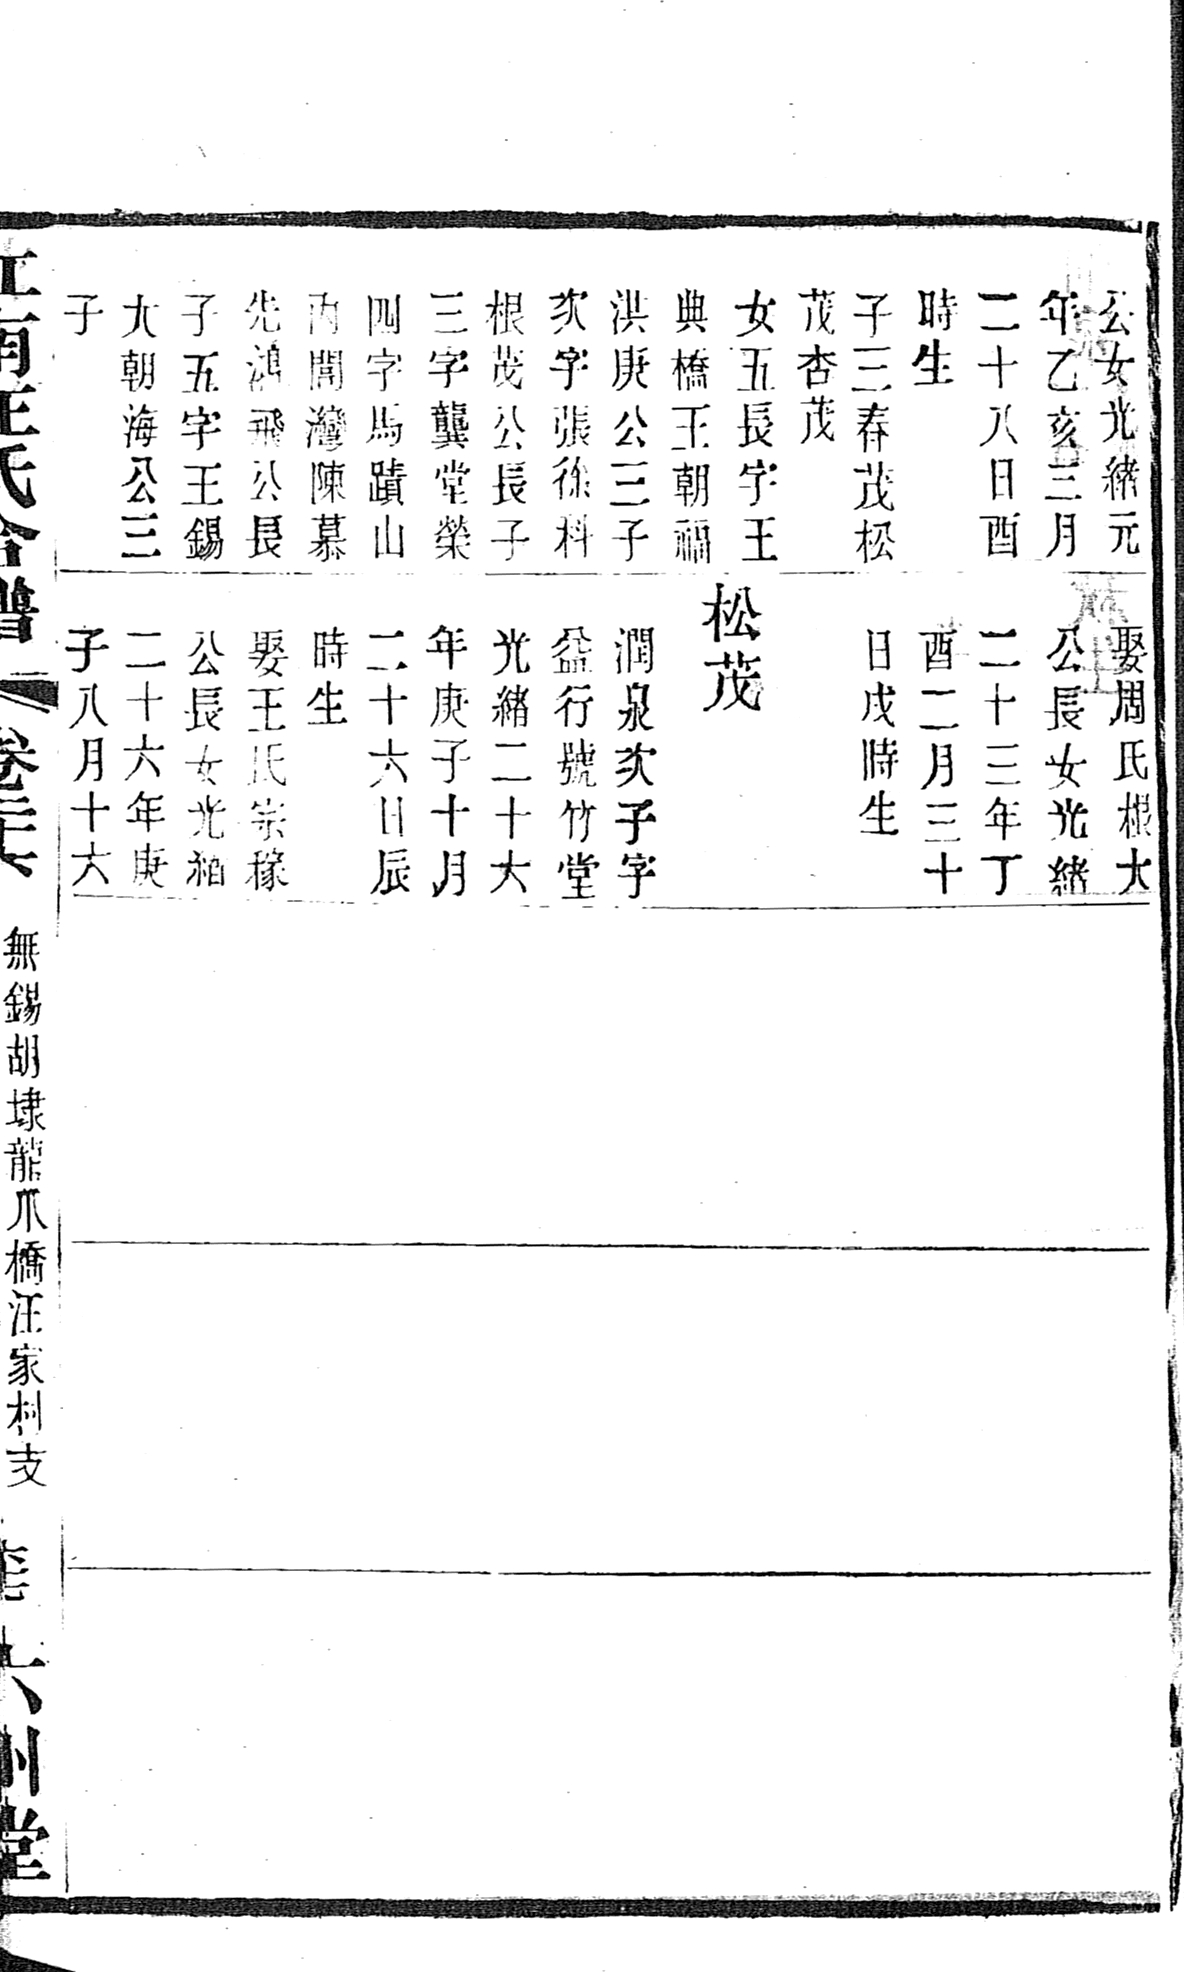 公女光緒元
年乙亥三月
二十八日酉
時生
子三春茂松
茂杏茂
女五長字王
典橋王朝福
洪庚公三子
次字張徐科
根茂公長子
三字龔堂榮
四字馬蹟山
內閭灣陳慕
先鴻飛公長
子五字王錫
大朝海公三
子
娶周氏根大
公長女光緒
二十三年丁
酉二月三十
日戌時生
松茂
潤泉次子字
益行號竹堂
光緒二十六
年庚子十月
二十六日辰
時生
娶王氏宗稼
公長女光緒
二十六年庚
子八月十六
江南汪氏合譜
卷三十六
無錫胡埭龍爪橋汪家村支
六州堂